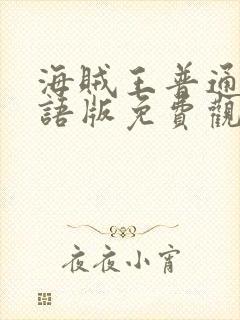 海賊王普通
語版免費觀
夜夜小宵